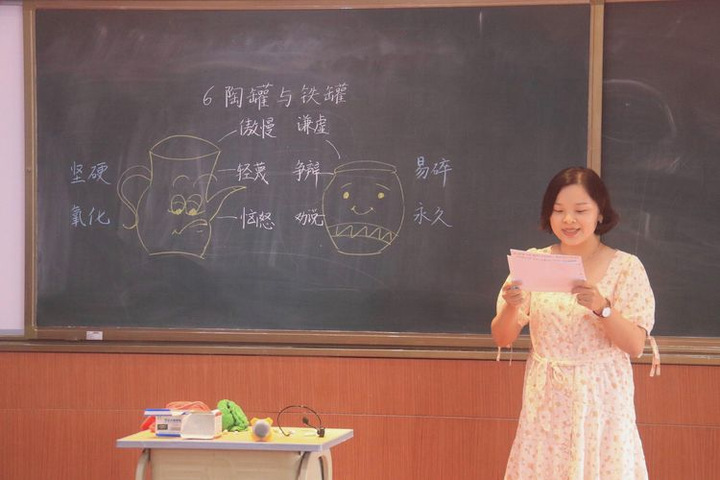 6 陶罐与铁罐
傲慢 谦虚
坚硬 轻蔑 争辩 易碎
氧化 恼怒 劝说 永久